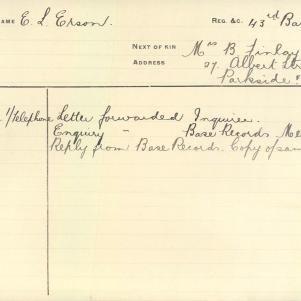 NAME E. L. Erson. REG. &C. 43rd Ba
NEXT OF KIN Mrs B. Finlay
ADDRESS 27. Albert Str
Parkside
1/Telephone Letter forwarded Inquirer.
Enquiry " Base Records. Me
Reply from Base Records. Copy of sam